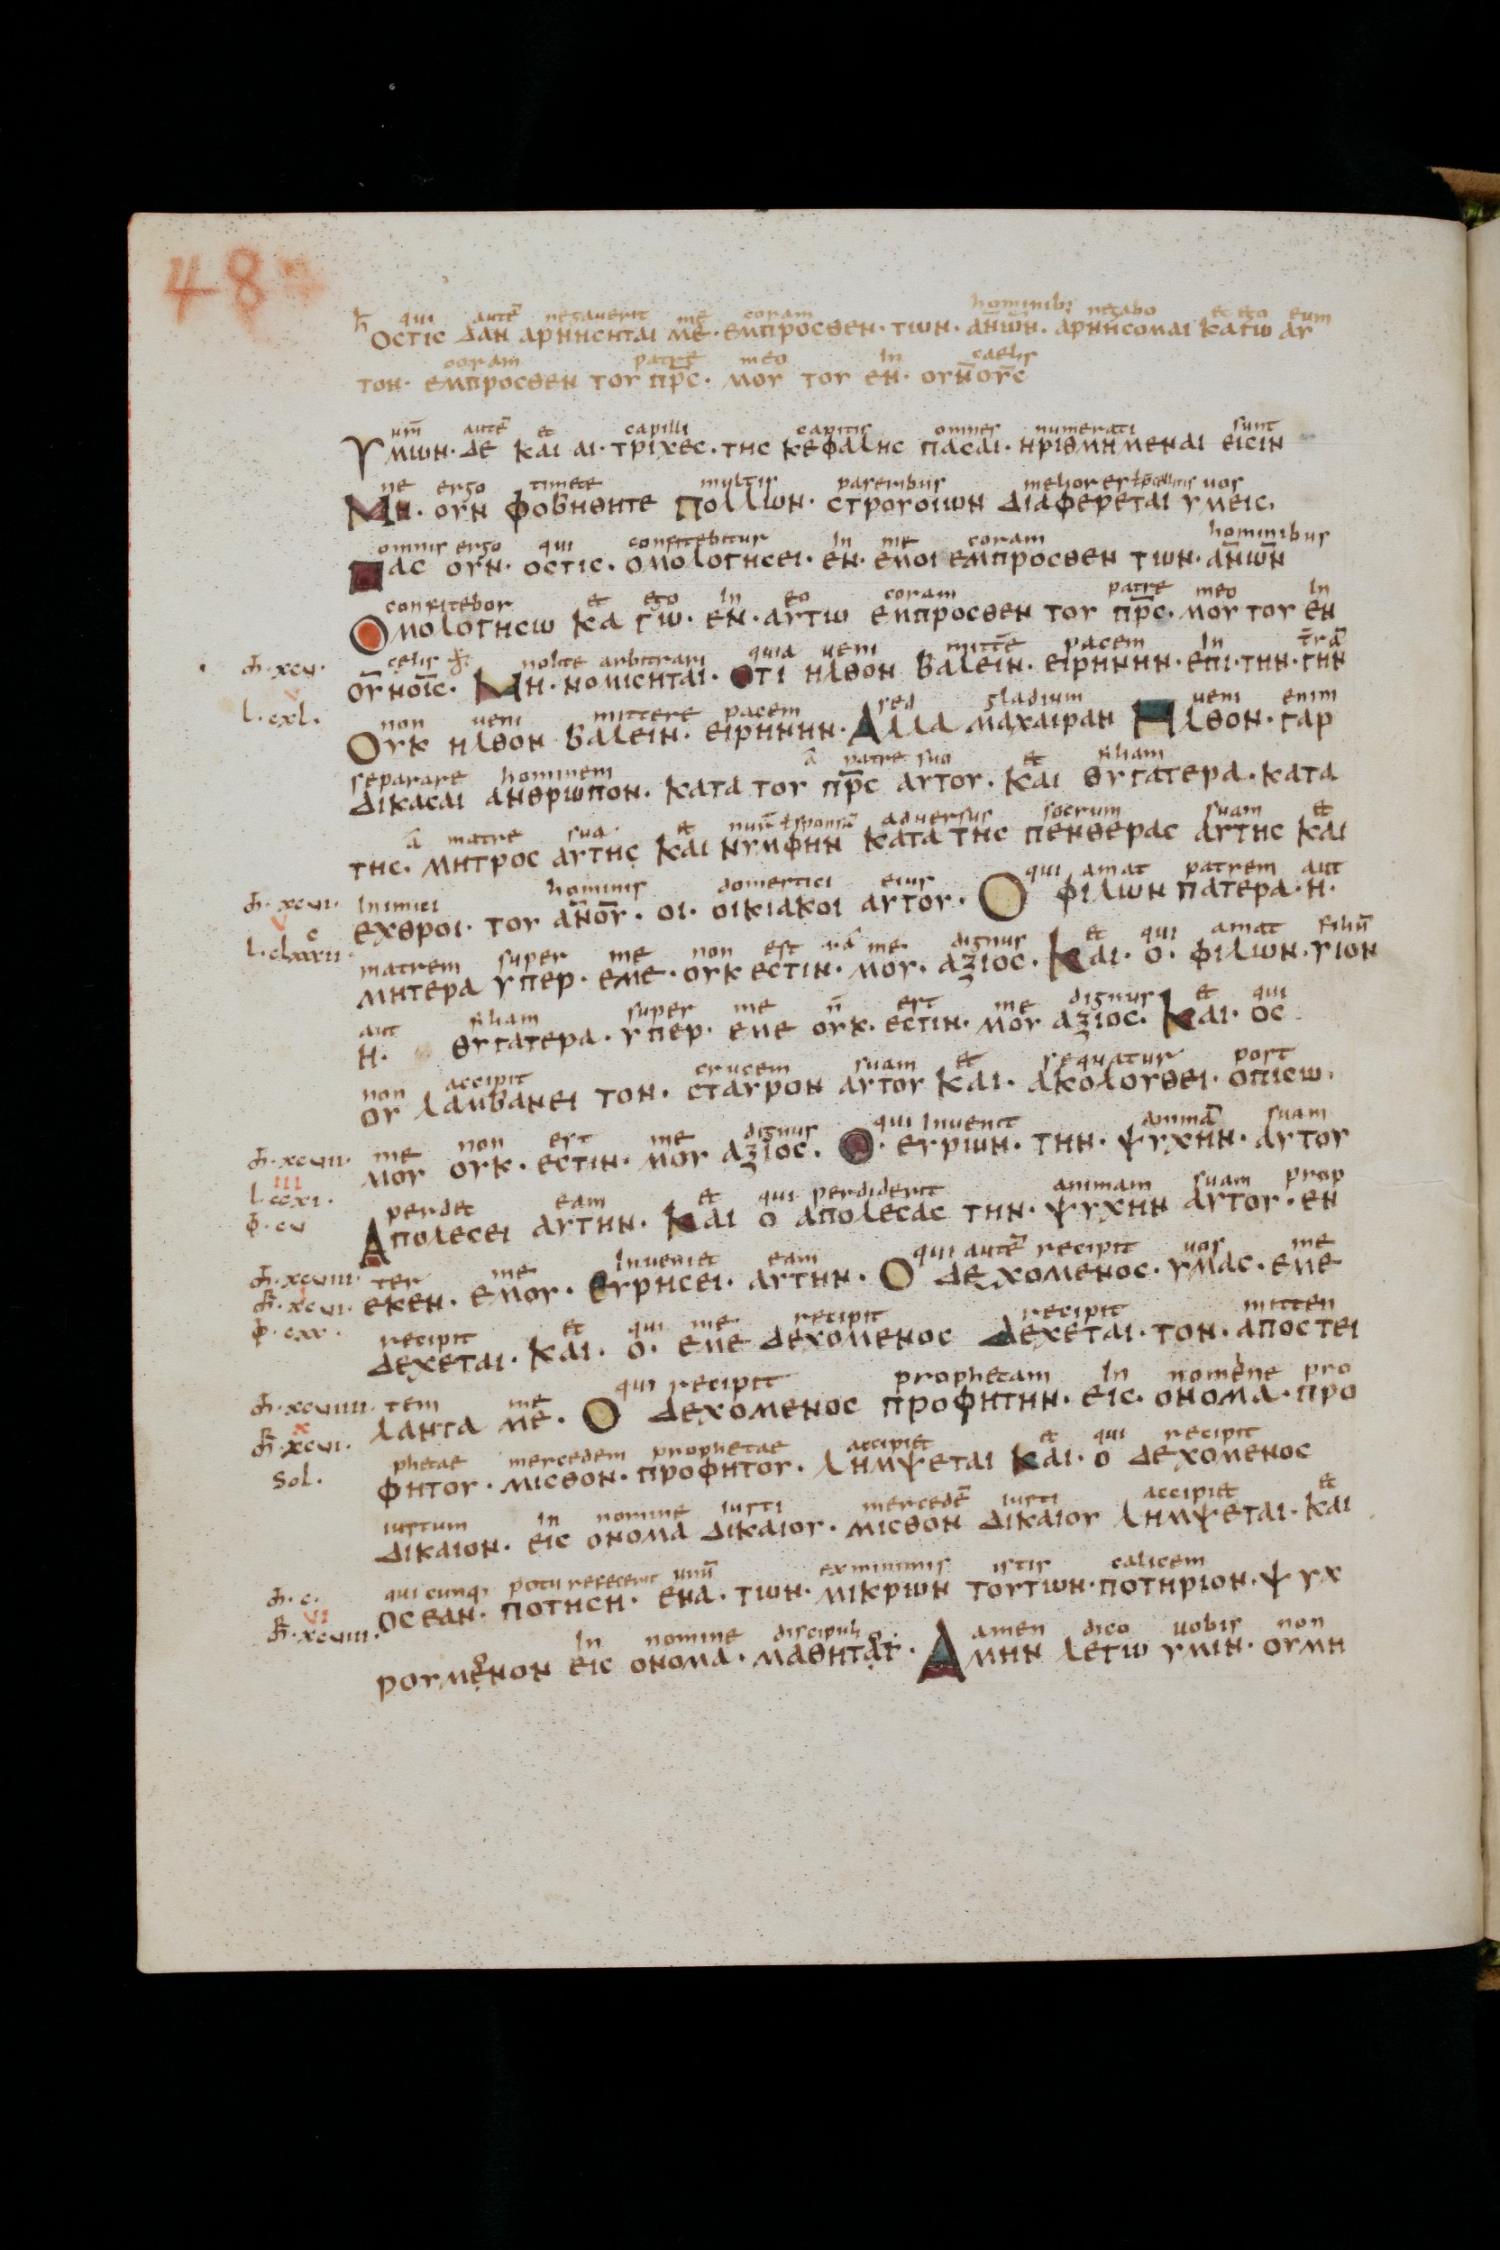 48
qui autē negaverit me coram hominibꝫ negabo et ego eum
ΟCΤΙC ΔΑΝ ΑΡΝΗCΗΤΑΙ ΜΕ· ΕΜΠΡΟCΘΕΝ· ΤΩΝ· ΑΝ̄Ω̄Ν· ΑΡΝΗCΟΜΑΙ ΚΑΓΩ ΑΥ
coram patre meo In caelis
ΤΟΝ· ΕΜΠΡΟCΘΕΝ ΤΟΥ ΠΡ̄C· ΜΟΥ ΤΟΥ ΕΝ· ΟΥΝ̄ΟῩC
um̄ autē et capilli capitis omnes numerati sunt
ΥΜΩΝ· ΔΕ ΚΑΙ ΑΙ· ΤΡΙΧΕC· ΤΗC ΚΕΦΑΛΗC ΠΑCΑΙ· ΗΡΙΘΜΗΜΕΝΑΙ ΕΙCΙΝ
ne ergo timete multis paseribus meliores uos
ΜΗ· ΟΥΝ ΦΟΒΗΘΗΤΕ ΠΟΛΛΩΝ· CΤΡΟΥΟΙΩΝ ΔΙΑΦΕΡΕΤΑΙ ΥΜΕΙC·
omnis ergo qui confitebitur In me coram hominibus
ΠΑC ΟΥΝ· ΟCΤΙC· ΟΜΟΛΟΓΗCΕΙ· ΕΝ· ΕΜΟΙ ΕΜΠΡΟCΘΕΝ ΤΩΝ· ΑΝ̄ΩΝ̄
confitebor et ego In eo coram patre meo In
ΟΜΟΛΟΓΗCΩ ΚΑ ΓΩ· ΕΝ· ΑΥΤΩ ΕΜΠΡΟCΘΕΝ ΤΟΥ ΠΡ̄C· ΜΟΥ ΤΟΥ ΕΝ
celis nolite arbitrari quia ueni mittē pacem In t̄rā
ΟῩΝΟῙC· ΜΗ· ΝΟΜΙCΗΤΑΙ· ΟΤΙ ΗΛΘΟΝ ΒΑΛΕΙΝ· ΕΙΡΗΝΗΝ· ΕΠΙ· ΤΗΝ· ΓΗΝ
·xcv·
v
l·cxl·
non ueni mittere pacem sed gladium ueni enim
ΟΥΚ ΗΛΘΟΝ ΒΑΛΕΙΝ· ΕΙΡΗΝΗΝ· ΑΛΛΑ ΜΑΧΑΙΡΑΝ ΗΛΘΟΝ· ΓΑΡ
separare hominem ā patre suo et filiam
ΔΙΚΑCΑΙ ΑΝΘΡΩΠΟΝ· ΚΑΤΑ ΤΟΥ ΠΡ̄C ΑΥΤΟΥ· ΚΑΙ ΘΥΓΑΤΕΡΑ· ΚΑΤΑ
ā matre sua et aduersus socrum suam et
ΤΗC· ΜΗΤΡΟC ΑΥΤΗC ΚΑΙ ΝΥΜΦΗΝ ΚΑΤΑ ΤΗC ΠΕΝΘΕΡΑC ΑΥΤΗC ΚΑΙ
Inimici hominis domestici eius qui amat patrem aut
ΕΧΘΡΟΙ· ΤΟΥ ΑΝ̄ΟῩ· ΟΙ· ΟΙΚΙΑΚΟΙ ΑΥΤΟΥ· Ο ΦΙΛΩΝ ΠΑΤΕΡΑ· Η·
·xcvi·
v
l·clxxxii·
matrem super me non est me dignus et qui amat filiū
ΜΗΤΕΡΑ ΥΠΕΡ· ΕΜΕ· ΟΥΚ ΕCΤΙΝ· ΜΟΥ· ΑΞΙΟC· ΚΑΙ· Ο· ΦΙΛΩΝ· ΥΙΟΝ
aut filiam super me n̄ est me dignus et qui
Η· ΘΥΓΑΤΕΡΑ· ΥΠΕΡ· ΕΜΕ ΟΥΚ· ΕCΤΙΝ· ΜΟΥ ΑΞΙΟC· ΚΑΙ· ΟC
non accipit crucem suam et sequatur post
ΟΥ ΛΑΜΒΑΝΕΙ ΤΟΝ· CΤΑΥΡΟΝ ΑΥΤΟΥ ΚΑΙ· ΑΚΟΛΟΥΘΕΙ· ΟΠΙCΩ·
me non est me dignus qui Inuenit animā suam
ΜΟΥ ΟΥΚ· ΕCΤΙΝ· ΜΟΥ ΑΞΙΟC· Ο· ΕΥΡΙΩΝ· ΤΗΝ· ΨΥΧΗΝ· ΑΥΤΟΥ
·xcvii·
III
l·ccxi·
·cv
perdet eam et qui perdiderit animam suam prop
ΑΠΟΛΕCΕΙ ΑΥΤΗΝ· ΚΑΙ Ο ΑΠΟΛΕCΑC ΤΗΝ· ΨΥΧΗΝ ΑΥΤΟΥ· ΕΝ
ter me Inueniet eam qui autē recipit uos me
ΕΚΕΝ· ΕΜΟΥ· ΕΥΡΗCΕΙ· ΑΥΤΗΝ· Ο ΔΕΧΟΜΕΝΟC· ΥΜΑC· ΕΜΕ
·xcviii·
·xcvi·
·cxx·
recipit et qui me recipit recipit mitten
ΔΕΧΕΤΑΙ· ΚΑΙ· Ο· ΕΜΕ ΔΕΧΟΜΕΝΟC ΔΕΧΕΤΑΙ· ΤΟΝ· ΑΠΟCΤΕΙ
tem me qui recipit prophetam In nomene pro
ΛΑΝΤΑ ΜΕ· Ο ΔΕΧΟΜΕΝΟC ΠΡΟΦΗΤΗΝ· ΕΙC· ΟΝΟΜΑ· ΠΡΟ
·xcviiii·
x
·xcvi·
Sol·
phetae mercedem prophetae accipiet et qui recipit
ΦΗΤΟΥ· ΜΙCΘΟΝ· ΠΡΟΦΗΤΟΥ· ΛΗΜΨΕΤΑΙ ΚΑΙ· Ο ΔΕΧΟΜΕΝΟC
iustum in nomine iusti mercedē iusti accipiet et
ΔΙΚΑΙΟΝ· ΕΙC ΟΝΟΜΑ ΔΙΚΑΙΟΥ· ΜΙCΘΟΝ ΔΙΚΑΙΟΥ ΛΗΜΨΕΤΑΙ· ΚΑΙ
qui cunqꝫ unū ex minimis istis calicem
ΟC ΕΑΝ· ΠΟΤΗCΗ· ΕΝΑ· ΤΩΝ· ΜΙΚΡΩΝ ΤΟΥΤΩΝ· ΠΟΤΗΡΙΟΝ· ΨΥΧ
·c·
VI
·xcviii·
In nomine discipuli amen dico uobis non
ΡΟΥΜΕΝΟΝ ΕΙC ΟΝΟΜΑ· ΜΑΘΗΤΑΥ· ΑΜΗΝ ΛΕΓΩ ΥΜΙΝ· ΟΥΜΗ